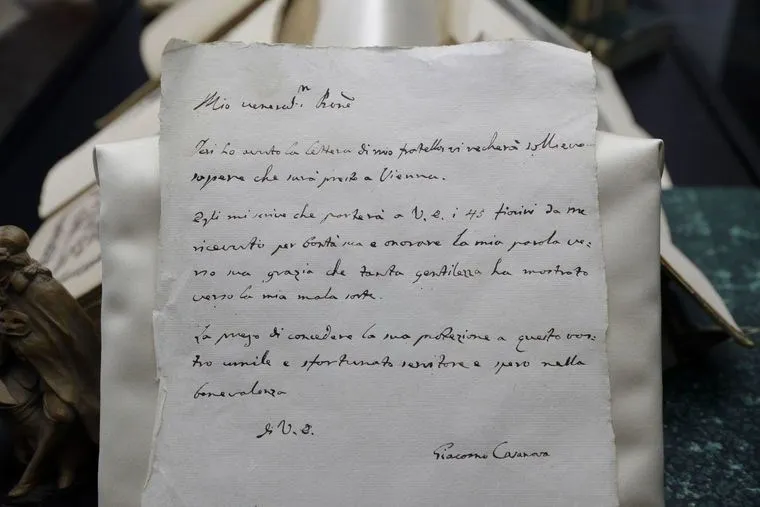 Mio venerat.mo Pronē
Jeri ho avuto la lettera di mio fratello vi recherà sollievo
sapere che sarà presto a Vienna.
Egli mi scrive che porterà a V. E. i 45 fiorini da me
ricevuto per bontà sua e onorare la mia parola ve-
rso sua grazia che tanta gentilezza ha mostrato
verso la mia mala sorte.
La prego di concedere la sua protezione a questo vos-
tro umile e sfortunato servitore e spero nella
benevolenza
di V. E.
Giacomo Casanova